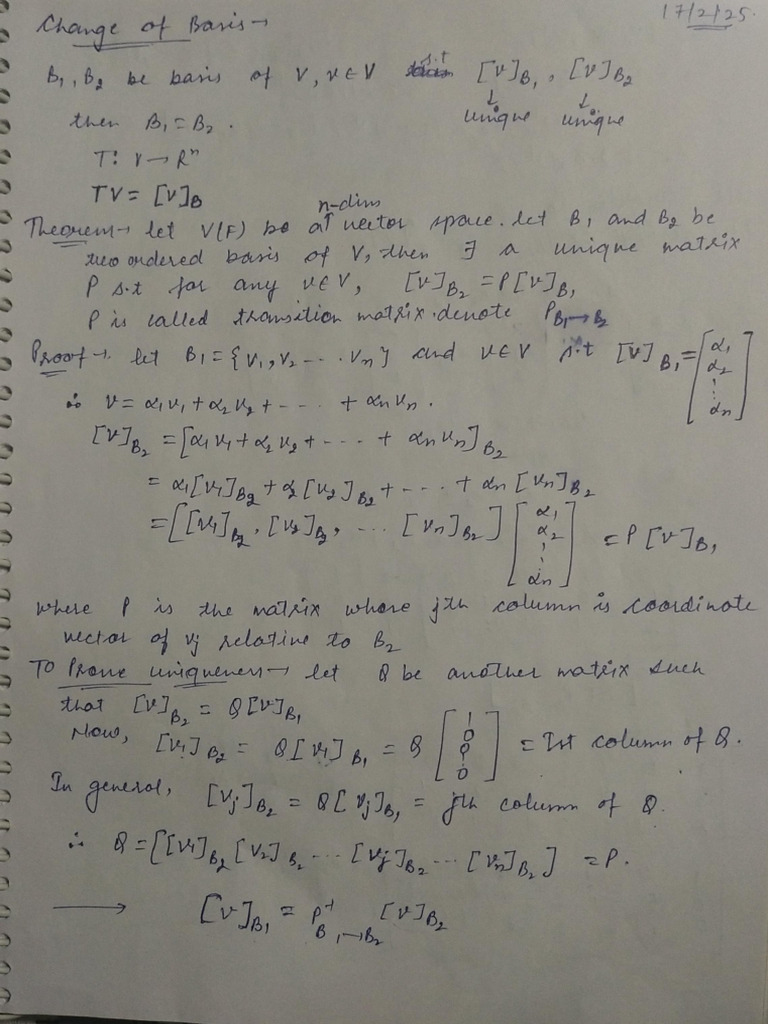 17/2/25.
Change of Basis→
B₁, B₂ be basis of V, v∈V s.t [v]B₁, [v]B₂
↓ unique ↓ unique
then B₁ = B₂.
T: V → Rⁿ
TV = [v]B
n-dim
Theorem→ let V(F) be a vector space. let B₁ and B₂ be
two ordered basis of V, then ∃ a unique matrix
P s.t for any v∈V, [v]B₂ = P[v]B₁
P is called transition matrix. denote P B₁→B₂
Proof→ let B₁ = {v₁, v₂ --- vₙ} and v∈V s.t [v]B₁ = [α₁ α₂ ⋮ αₙ]
∴ v = α₁v₁ + α₂v₂ + ---- + αₙvₙ.
[v]B₂ = [α₁v₁ + α₂v₂ + ---- + αₙvₙ]B₂
= α₁[v₁]B₂ + α₂[v₂]B₂ + ---- + αₙ[vₙ]B₂
= [[v₁]B₂, [v₂]B₂, ... [vₙ]B₂] [α₁ α₂ ⋮ αₙ] = P[v]B₁
where P is the matrix whose jth column is coordinate
vector of vj relative to B₂
To Prove uniqueness→ let Q be another matrix such
that [v]B₂ = Q[v]B₁
Now, [v₁]B₂ = Q[v₁]B₁ = Q [1 0 0 ⋮ 0] = Ist column of Q.
In general, [vj]B₂ = Q[vj]B₁ = jth column of Q.
∴ Q = [[v₁]B₂ [v₂]B₂ --- [vj]B₂ --- [vₙ]B₂] = P.
→ [v]B₁ = P⁻¹ B₁→B₂ [v]B₂